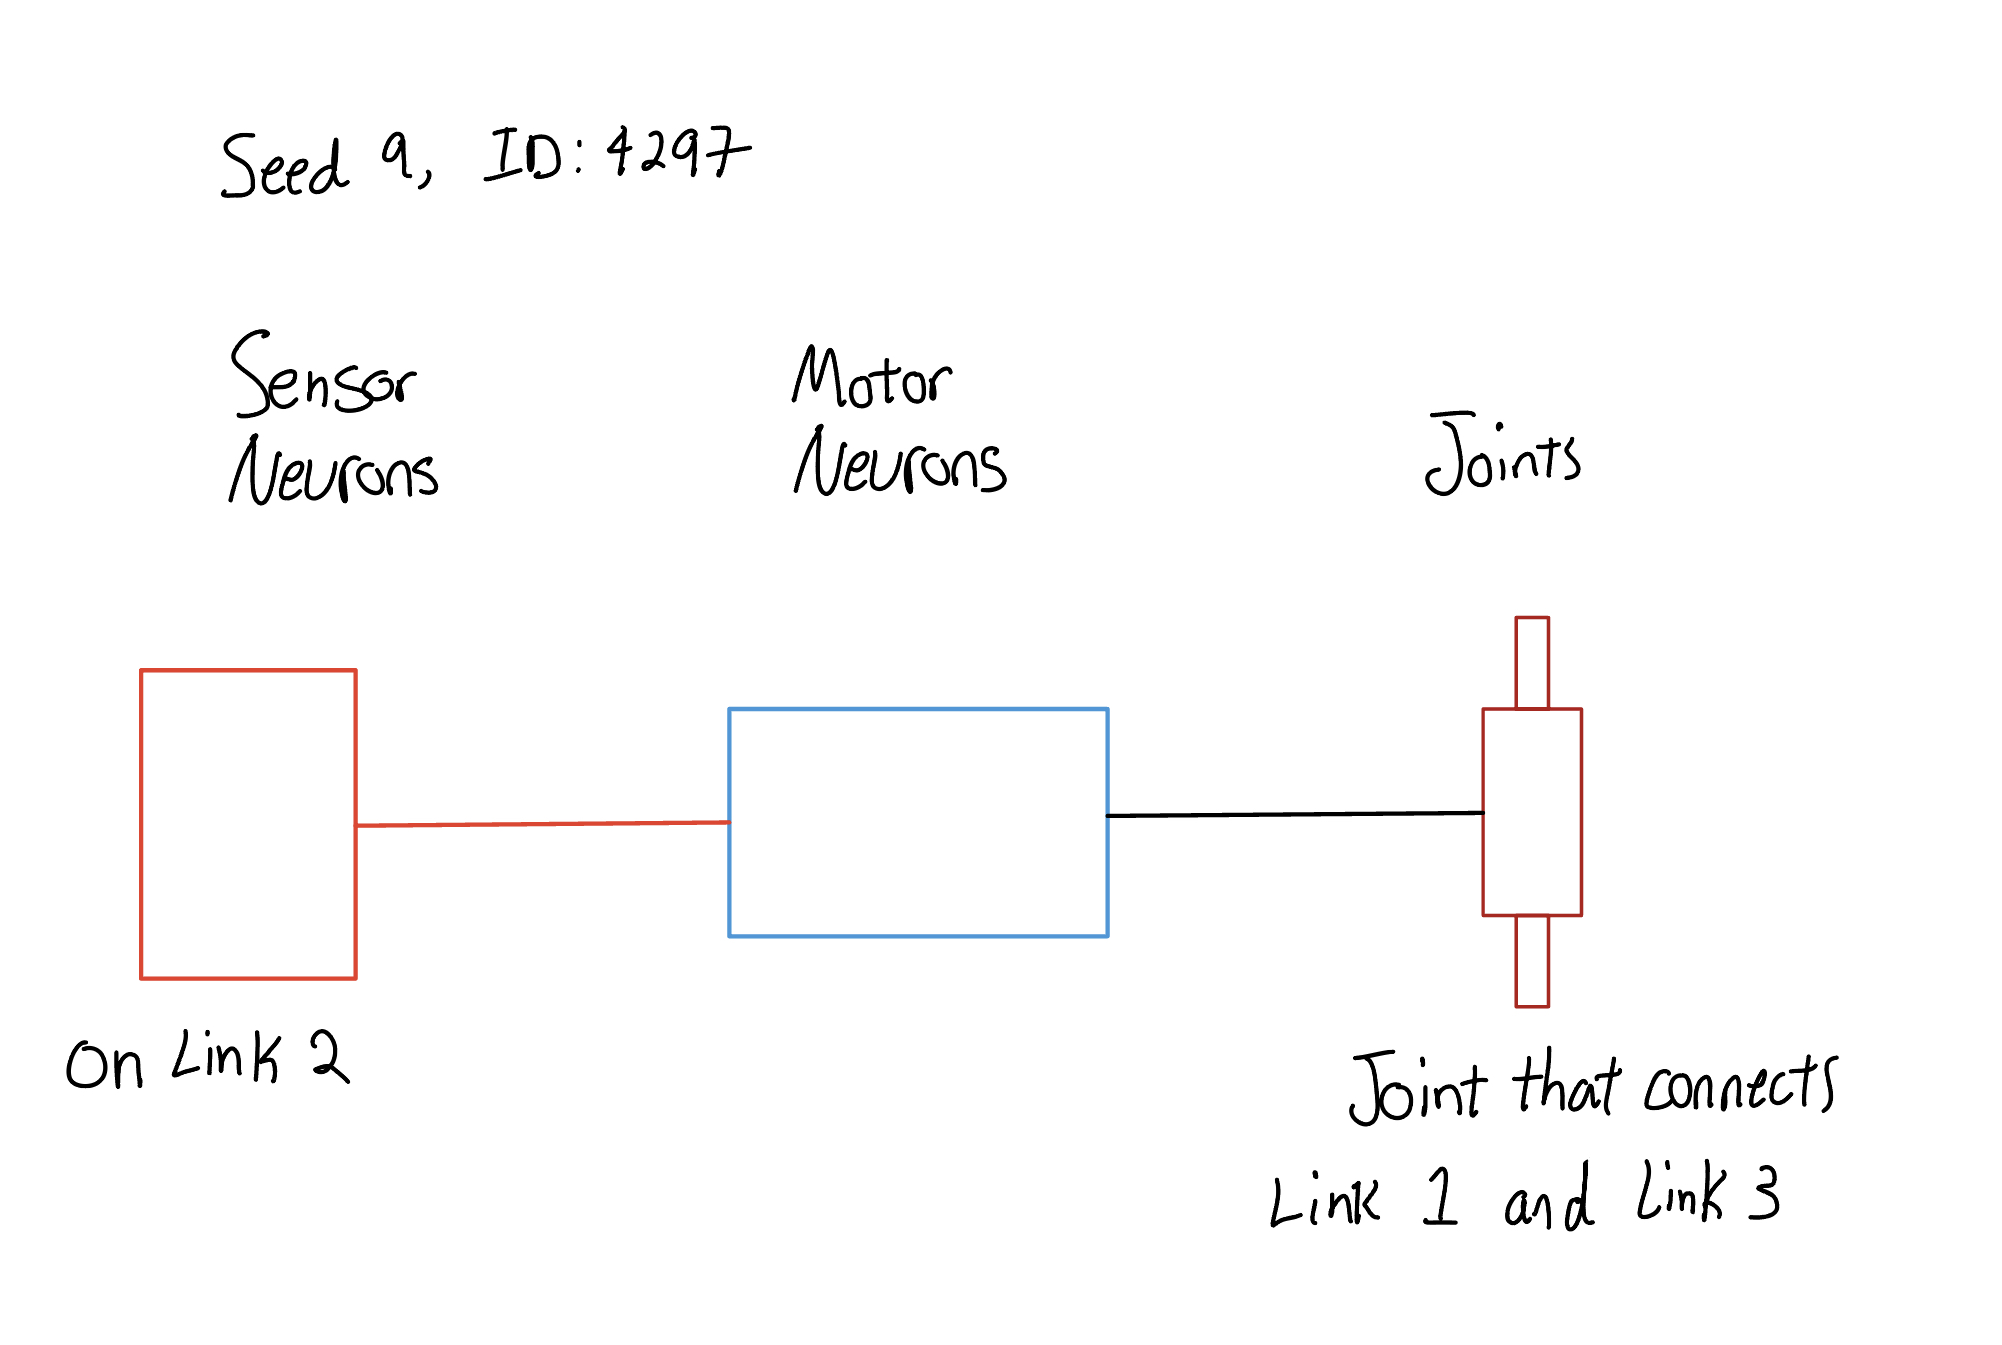 Seed 9, ID: 4297
Sensor
Neurons
Motor
Neurons
Joints
On Link 2
Joint that connects
Link 1 and Link 3